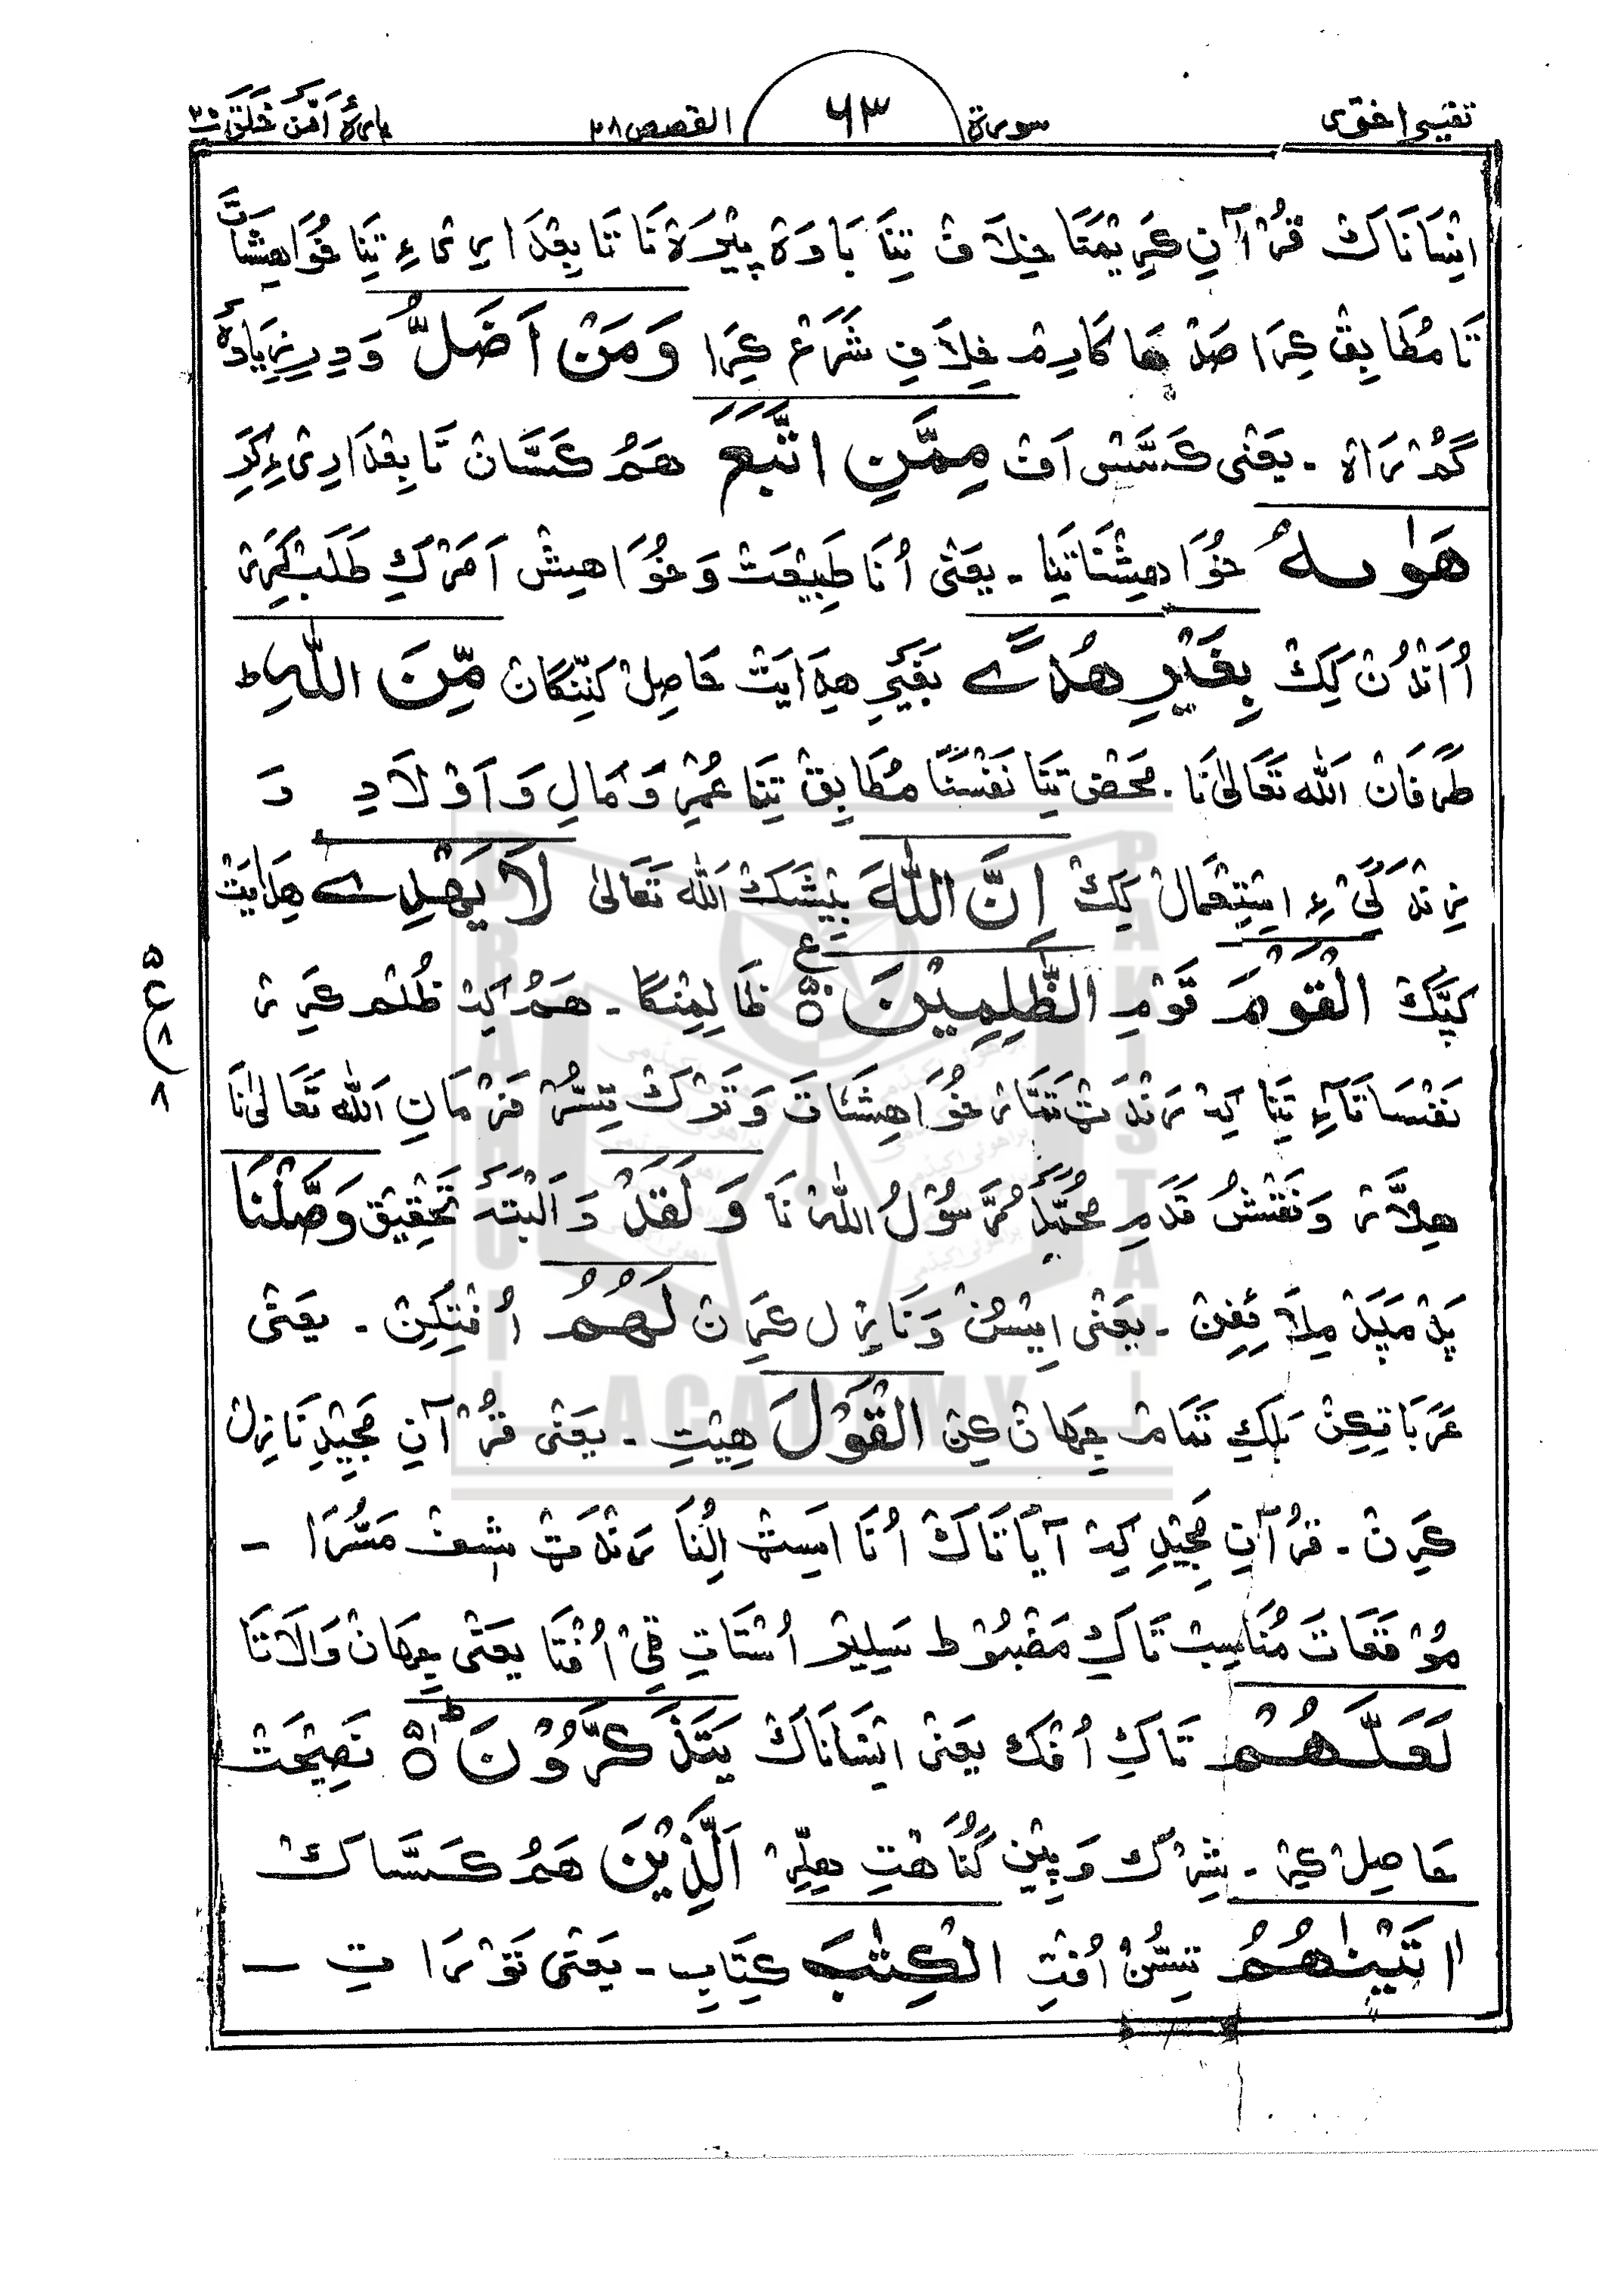 تفسیر اختری
سورة
۶۳
القصص ۲۸
پارهٔ اَمَّنْ خَلَقَ ۲۰
اِنْسَانَاکْ قُرْآنِ کَرِیْمَنَا خِلَافْ تِنَا بَاوَه پِیْرَه نَا تَابِعْدَارِیءِ تِنَا خُوَاهِشَاتَ
تَا مُطَابِقْ کِرَا صَدْ هَا کَارِمْ خِلَافِ شَرَعْ کِرَا وَمَنْ اَضَلُّ وَ دِیرِ زِیَادَهٔ
گُمْرَاهْ - یَعْنِی کَسَّسْ اَفْ مِمَّنِ اتَّبَعَ هَمُ کَسَّانْ تَابِعْدَارِیءِ کَرِ
هَوٰىهُ خُوَاهِشْنَا تِنَا - یَعْنِی اُنَا طَبِیْعَتْ وَ خُوَاهِشْ اَمَرْکِ طَلَبْ کَرِیْ
اُ اَنْدُنْ کِکْ بِغَیْرِ هُدًے بَغَیْرِ هِدَایَتْ حَاصِلْ کَنِنْگَانْ مِّنَ اللّٰهِ ط
طَرَفَانْ اَللّٰه تَعَالٰی نَا - مَحَضْ تِنَا نَفْسَنَا مُطَابِقْ تِنَا عُمْرِ وَ مَالِ وَ اَوْلَادِ وَ
زِنْدَگِیْءِ اِسْتِعْمَالْ کِکْ اِنَّ اللّٰهَ بِیْشَکْ اَللّٰه تَعَالٰی لَا یَهْدِے هِدَایَتْ
کَپَّکْ الْقَوْمَ قَوْمِ الظّٰلِمِیْنَ ۵۰ ع ظَالِمِنْکَا - هَمُ کِہْ ظُلْم کَرِیْ
نَفْسَا تَآءِ تِنَا کِہْ رَنْدَتْ تَمَّارْ خُوَاهِشَاتَ وَ تَرْکْ تِسُّرْ فَرْمَانِ اَللّٰه تَعَالٰی نَا
هِلَّارْ وَ نَقْشُ قَدَمِ مُحَمَّدُ رَّسُوْلُ اللّٰهْ نَا وَ لَقَدْ وَ اَلْبَتَّه تَحْقِیْق وَصَّلْنَا
پَدْ مَپَدْ مِلَائِفِنْ - یَعْنِی اِیْسُنْ وَ نَازِل کَرِنْ لَهُمُ اُفْتِکِنْ - یَعْنِی
عَرَبَاتِکِنْ بَلْکِ تَمَامْ جِهَانْ کِنْ الْقَوْلَ هِیْتِ - یَعْنِی قُرْآنِ مَجِیْدِ نَازِلْ
کَرِنْ - قُرآنِ مَجِیْدِ کِہْ آیَاتَاکْ اُنَا اَسِتْ اِلُنَا رَنْدَتْ شِفْ مَسُّرَا -
مُوْقَعَاتَ مُنَاسِبْ تَاکِ مَضْبُوْط سَلِیْرْ اُسْتَاتِ قِیْ اُفْتَا یَعْنِی جِهَانْ وَالَاتَا
لَعَلَّهُمْ تَاکِ اُفْکْ یَعْنِی اِنْسَانَاکْ یَتَذَکَّرُوْنَ ۵۱ ط نَصِیْحَتْ
حَاصِلْ کِرْ - شِرْکْ وَ پِیْنِ گُنَاهْتِ هِلِّرْ اَلَّذِیْنَ هَمُ کَسَّاکْ
اٰتَیْنٰهُمُ تِسُّنْ اُفْتِ الْکِتٰبَ کِتَابِ - یَعْنِی تَوْرَاتِ —
۵
ع
۸
۸
BRAHUI
ACADEMY
PAKISTAN